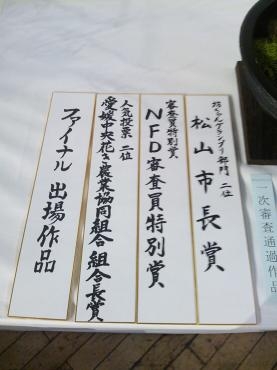 坊ちゃんグランプリ部門 二位
松山市長賞
審査員特別賞
NFD審査員特別賞
人気投票 二位
愛媛中央花き農業協同組合 組合長賞
ファイナル 出場作品
一次審査通過作品